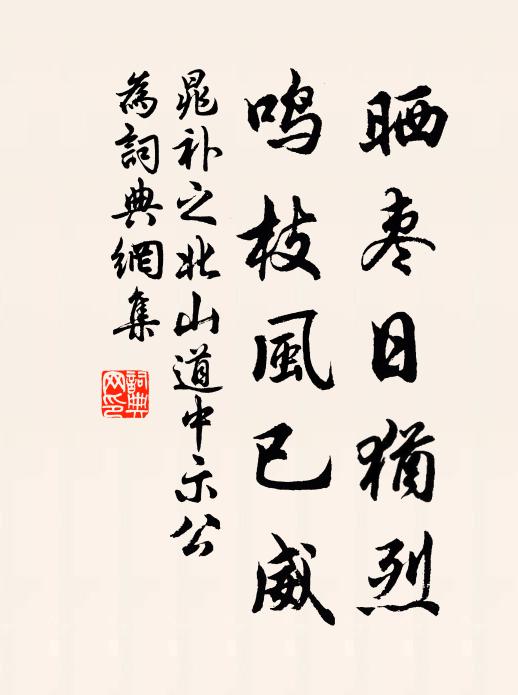 晒枣日猶烈
鸣枝風已威
晁补之北山道中示公
為詞典網集
詞典网印